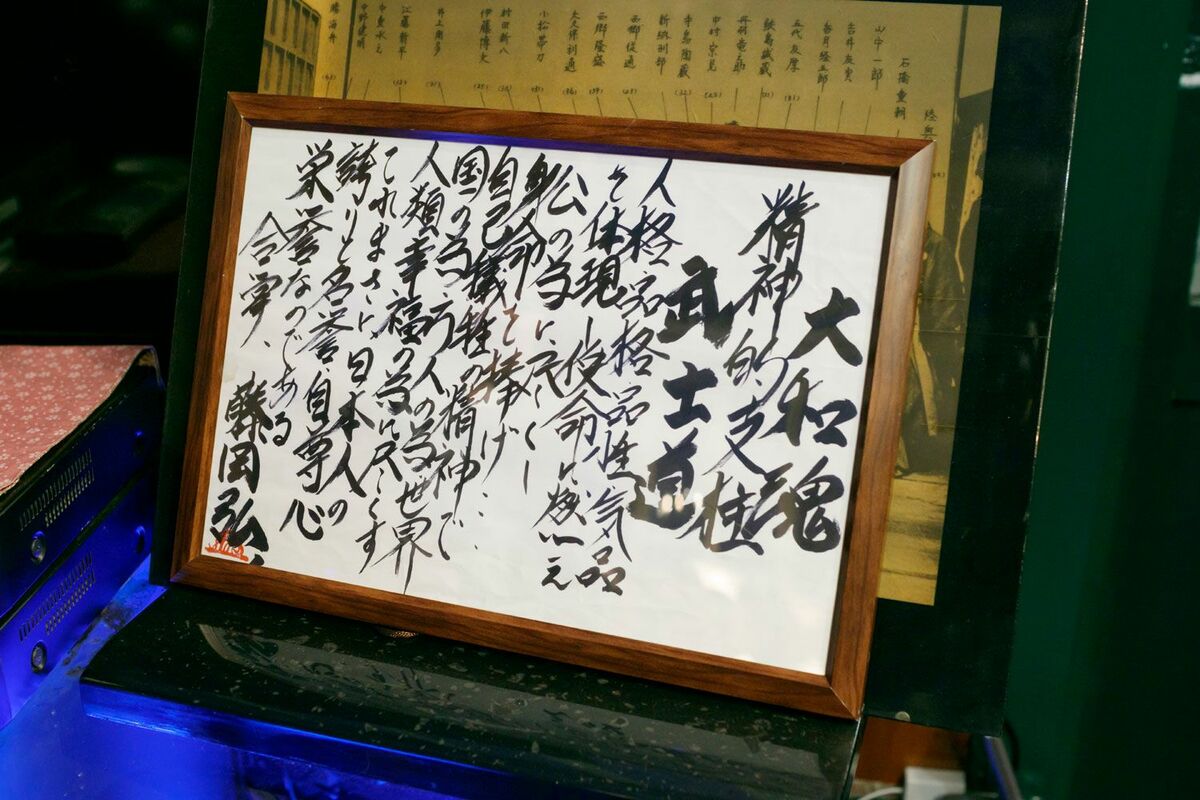 大和魂
精神的支柱
武士道
人格品格品性気品
を体現し使命に燃え
公の為に尽くし
身命
自己犠牲の精神で
国の為
人の為世界
人類幸福の為に尽くす
これまさに日本人の
誇りと名誉、自尊心
栄誉なのである
合掌、
藤岡弘、
陸奥
石橋重朝
山中一郎
吉井友実
香月経五郎
五代友厚
鮫島誠蔵
丹羽竜之助
中村宗見
寺島陶蔵
新納刑部
西郷従道
西郷隆盛
大久保利通
小松帯刀
村田新八
伊藤博文
井上聞多
江藤新平
中野健明
勝海舟